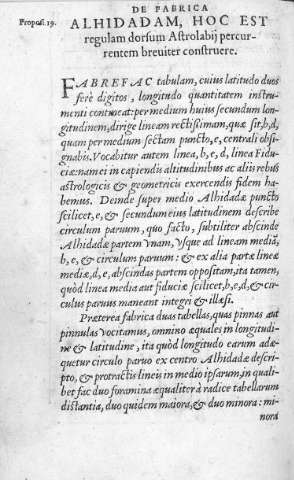 DE FABRICA
Proposi.19.
ALHIDADAM, HOC EST
regulam dorsum Astrolabij percur-
rentem breuiter construere.
FABREFAC tabulam, cuius latitudo duos
ferè digitos, longitudo quantitatem instru-
menti contineat: per medium huius secundum lon-
gitudinem, dirige lineam rectissimam, quæ sit, b, d,
quam per medium secta puncto, e, centrali obsi-
gnabis. Vocabitur autem linea, b, e, d, linea Fidu-
ciæ: nam ei in capiendis altitudinibus ac alijs rebus
astrologicis & geometricis exercendis fidem ha-
bemus. Deinde super medio Alhidadæ puncto
scilicet, e, & secundum eius latitudinem describe
circulum paruum, quo facto, subtiliter abscinde
Alhidadæ partem vnam, vsque ad lineam mediã,
b, e, & circulum paruum: & ex alia parte lineæ
mediæ, d, e, abscindas partem oppositam, ita tamen,
quòd linea media aut fiduciæ scilicet, b, e, d, & cir-
culus paruus maneant integri & illæsi.
Præterea fabrica duas tabellas, quas pinnas aut
pinnulas vocitamus, omnino æquales in longitudi-
ne & latitudine, ita quòd longitudo earum adæ-
quetur circulo paruo ex centro Alhidadæ descri-
pto, & protractis lineis in medio ipsarum, in quali-
bet fac duo foramina æqualiter à radice tabellarum
distantia, duo quidem maiora, & duo minora: mi-
nora